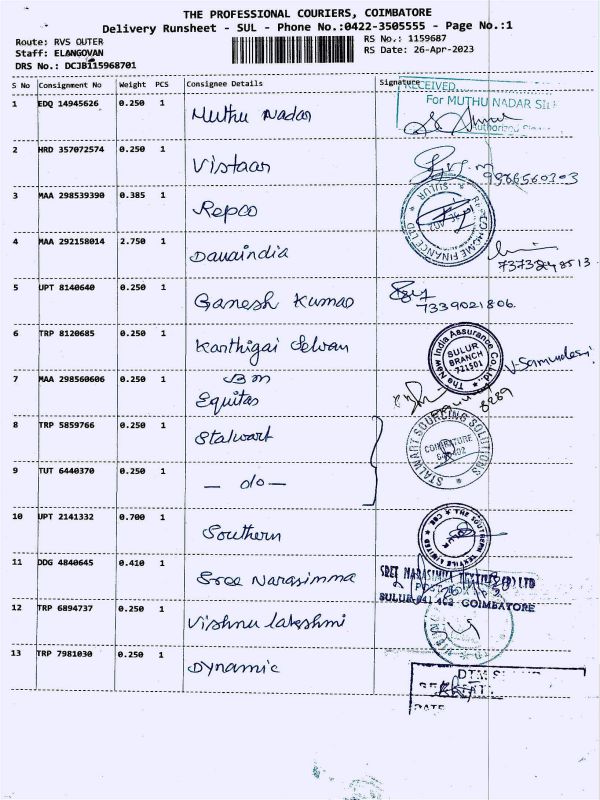 THE PROFESSIONAL COURIERS, COIMBATORE
Delivery Runsheet - SUL - Phone No.:0422-3505555 - Page No.:1
Route: RVS OUTER
Staff: ELANGOVAN
DRS No.: DCJB115968701
RS No.: 1159687
RS Date: 26-Apr-2023
S No Consignment No Weight PCS Consignee Details Signature
RECEIVED
For MUTHU NADAR
1 EDQ 14945626 0.250 1 Muthu Nadar
2 HRD 357072574 0.250 1 Vistaar
3 MAA 298539390 0.385 1 Repco
SULUR
HOME FINANCE LTD
4 MAA 292158014 2.750 1 Davaindia
5 UPT 8140640 0.250 1 Ganesh Kumar
7339021806.
6 TRP 8120685 0.250 1 Karthigai Selvan
The New India Assurance Co.Ltd.
SULUR
BRANCH
721501
7 MAA 298560606 0.250 1 BM
Equitas
8289
8 TRP 5859766 0.250 1 Stalwart
STALWART SOURCING SOLUTIONS
COIMBATORE
9 TUT 6440370 0.250 1 — do —
10 UPT 2141332 0.700 1 Southern
THE SOUTHERN TEXTILE LIMITED
CBE
SULUR
11 DDG 4840645 0.410 1 Sree Narasimma
SREE NARASIMMA TEXTILES (P) LTD
SULUR-641 402 COIMBATORE
12 TRP 6894737 0.250 1 Vishnu lakshmi
13 TRP 7981030 0.250 1 Dynamic
DATE